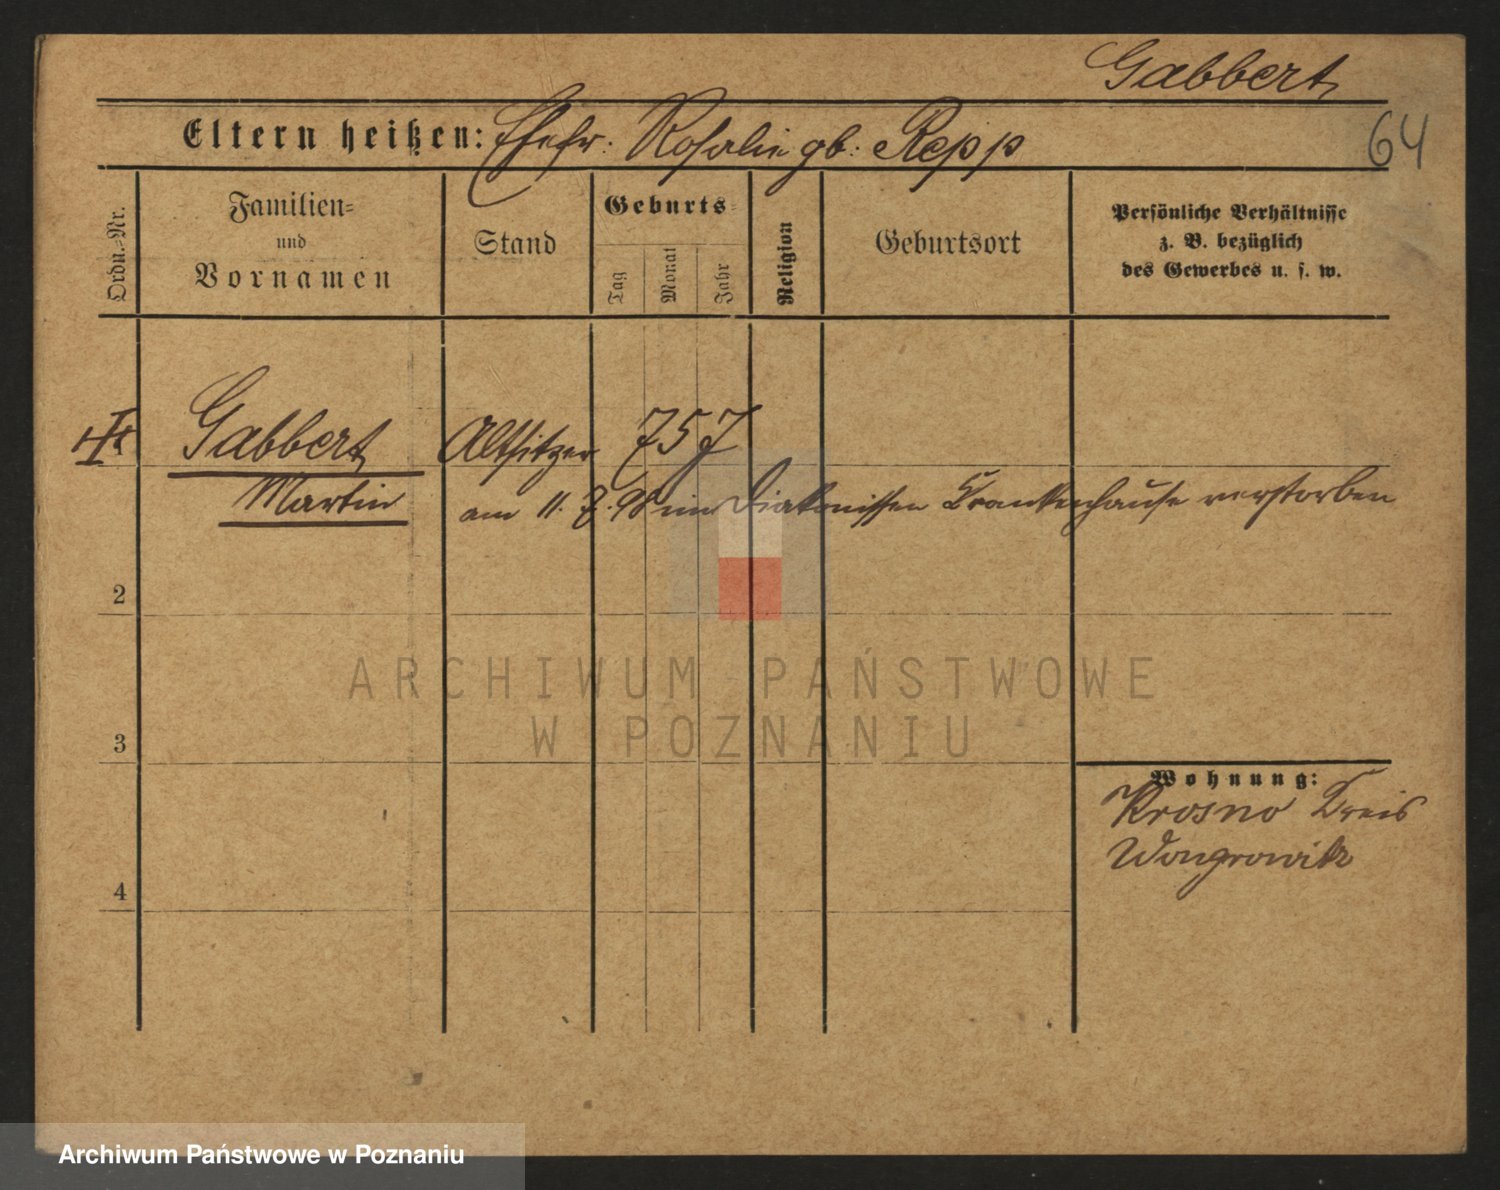 Gabbert
64
Eltern heißen: Ehefr: Rosalie gb: Repp
Ordn.-Nr.
Familien-
und
Vornamen
Stand
Geburts-
Tag
Monat
Jahr
Religion
Geburtsort
Persönliche Verhältnisse
z. B. bezüglich
des Gewerbes u. s. w.
Gabbert Altsitzer 75 J
Martin am 11. 7. 98 im Diakonissen Krankenhause verstorben
2
ARCHIWUM PAŃSTWOWE
W POZNANIU
3
Wohnung:
Krosno Kreis
Wongrowitz
4
Archiwum Państwowe w Poznaniu